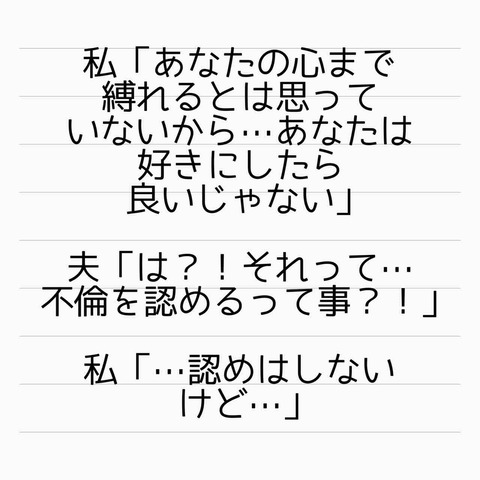 私「あなたの心まで
縛れるとは思って
いないから…あなたは
好きにしたら
良いじゃない」
夫「は？！それって…
不倫を認めるって事？！」
私「…認めはしない
けど…」